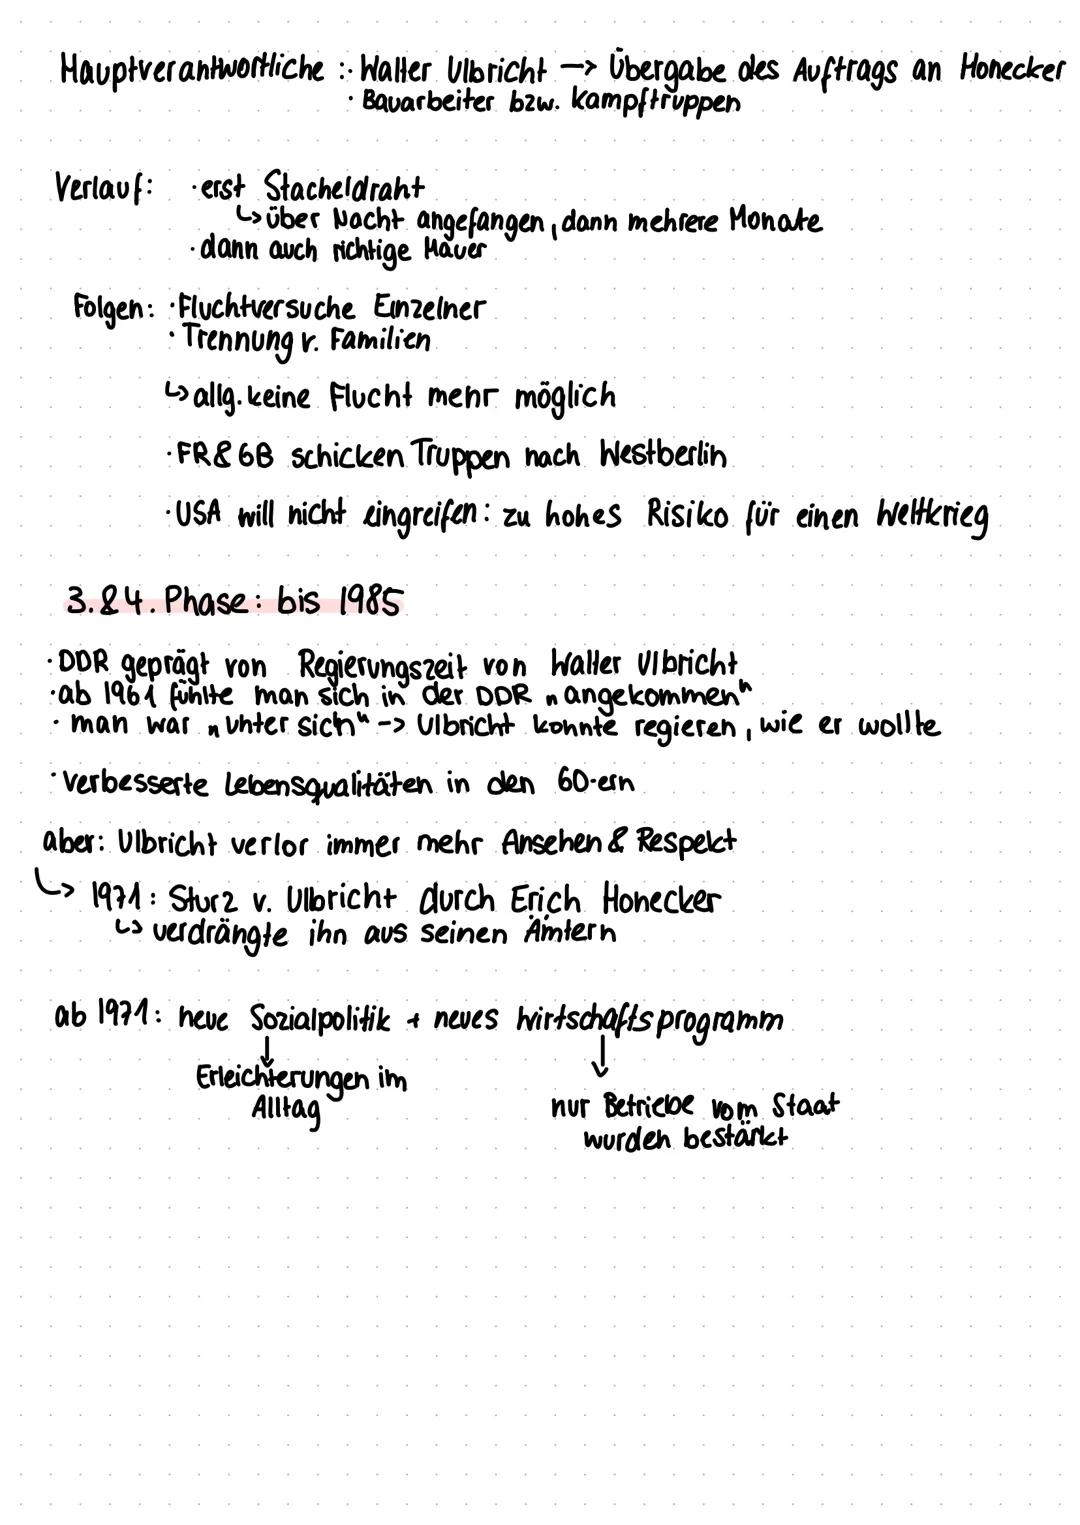 Hauptverantwortliche :· Walter Ulbricht –> Übergabe des Auftrags an Honecker
· Bauarbeiter bzw. Kampftruppen
Verlauf: · erst Stacheldraht
↳ über Nacht angefangen, dann mehrere Monate
· dann auch richtige Mauer
Folgen: · Fluchtversuche Einzelner
· Trennung v. Familien
↳ allg. keine Flucht mehr möglich
· FR & GB schicken Truppen nach Westberlin
· USA will nicht eingreifen: zu hohes Risiko für einen Weltkrieg
3. & 4. Phase: bis 1985
· DDR geprägt von Regierungszeit von Walter Ulbricht
· ab 1961 fühlte man sich in der DDR „angekommen“
· man war „unter sich“ -> Ulbricht konnte regieren, wie er wollte
· verbesserte Lebensqualitäten in den 60-ern
aber: Ulbricht verlor immer mehr Ansehen & Respekt
↳ 1971: Sturz v. Ulbricht durch Erich Honecker
↳ verdrängte ihn aus seinen Ämtern
ab 1971: neue Sozialpolitik + neues Wirtschaftsprogramm
↓ ↓
Erleichterungen im
Alltag
nur Betriebe vom Staat
wurden bestärkt